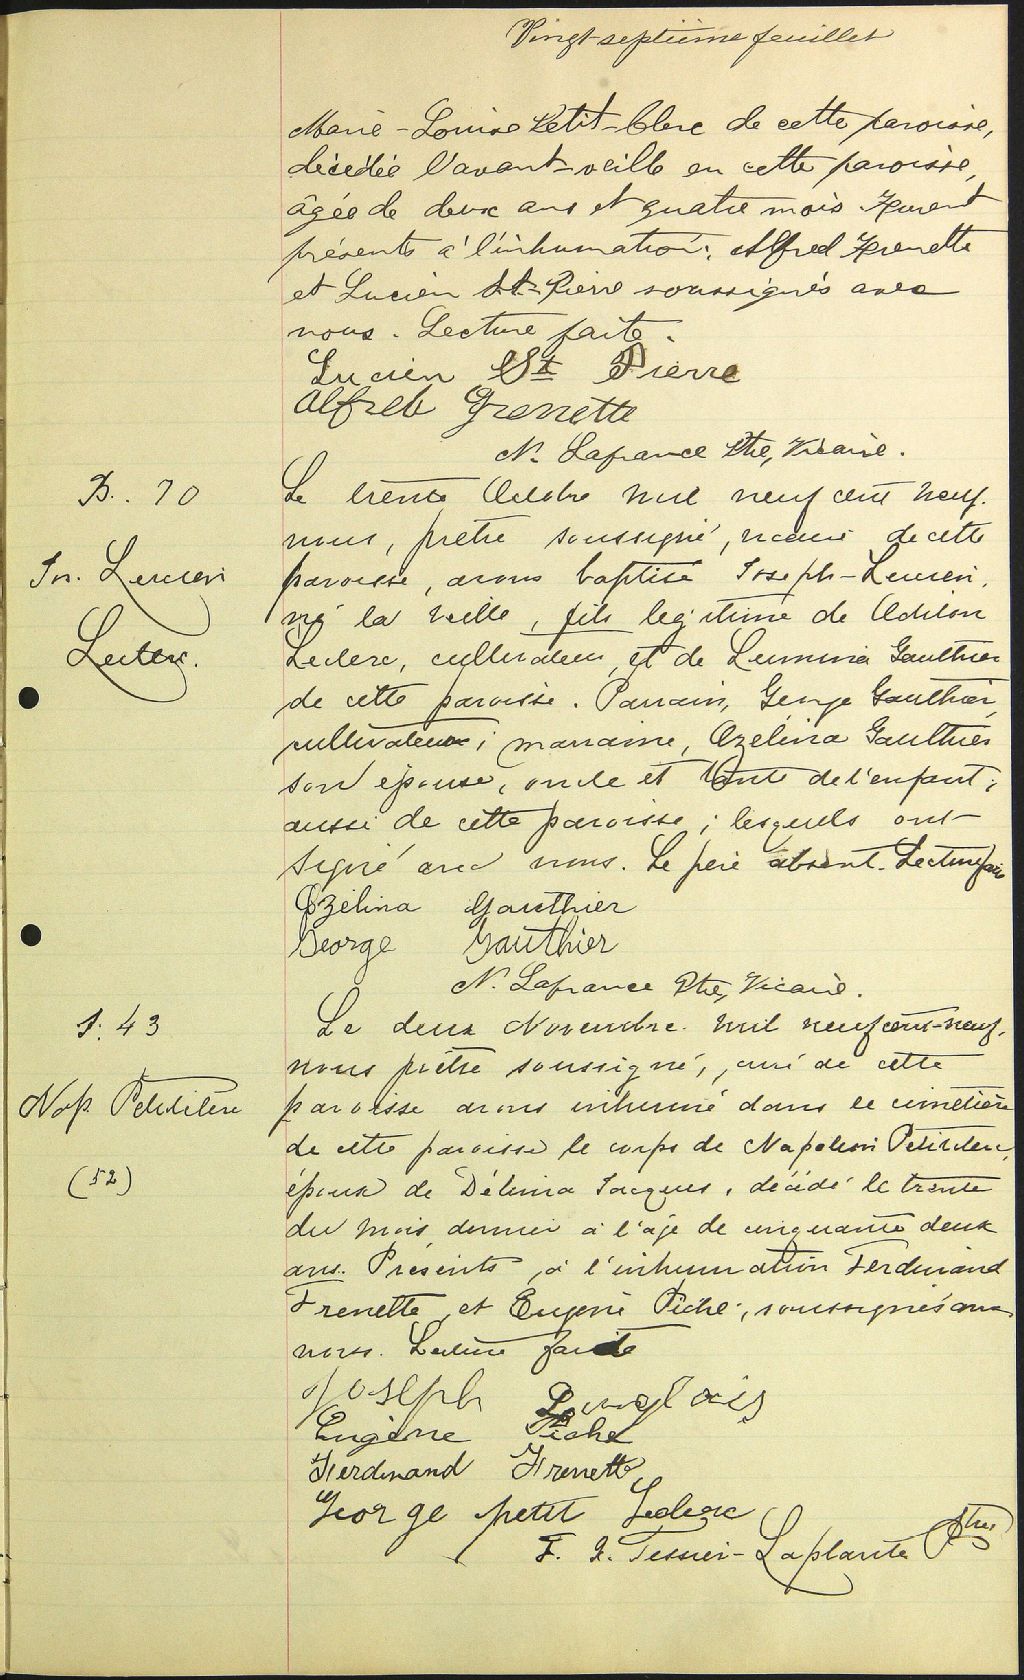 Vingt-septième feuillet
Marie-Louise Petit-Clerc de cette paroisse,
décédée l'avant-veille en cette paroisse,
âgée de deux ans et quatre mois Furent
présents à l'inhumation: Alfred Frenette
et Lucien St-Pierre soussignés avec
nous. Lecture faite.
Lucien St Pierre
Alfred Frenette
N. Lafrance Ptre, Vicaire.
B. 70
Le trente Octobre mil neuf cent neuf.
nous, prêtre soussigné, vicaire de cette
Jos. Lucien
paroisse, avons baptisé Joseph-Lucien,
né la veille, fils légitime de Odilon
Leclerc.
Leclerc, cultivateur, et de Lumina Gauthier
de cette paroisse. Parrain, George Gauthier,
cultivateur; marraine, Ozélina Gauthier
son épouse, oncle et tante de l'enfant,
aussi de cette paroisse; lesquels ont
signé avec nous. Le père absent. Lecture faite
Ozélina Gauthier
George Gauthier
N. Lafrance Ptre, Vicaire.
S. 43
Le deux Novembre mil neuf cent-neuf,
nous prêtre soussigné, curé de cette
Nap. Petitclerc
paroisse avons inhumé dans le cimetière
de cette paroisse le corps de Napoléon Petitclerc,
(52)
époux de Délima Jacques, décédé le trente
du mois dernier à l'âge de cinquante deux
ans. Présents, à l'inhumation Ferdinand
Frenette, et Eugène Piché, soussignés avec
nous. Lecture faite
Joseph Langlais
Eugène Piché
Ferdinand Frenette
George petit Leclerc
F. X. Tessier-Laplante Ptre